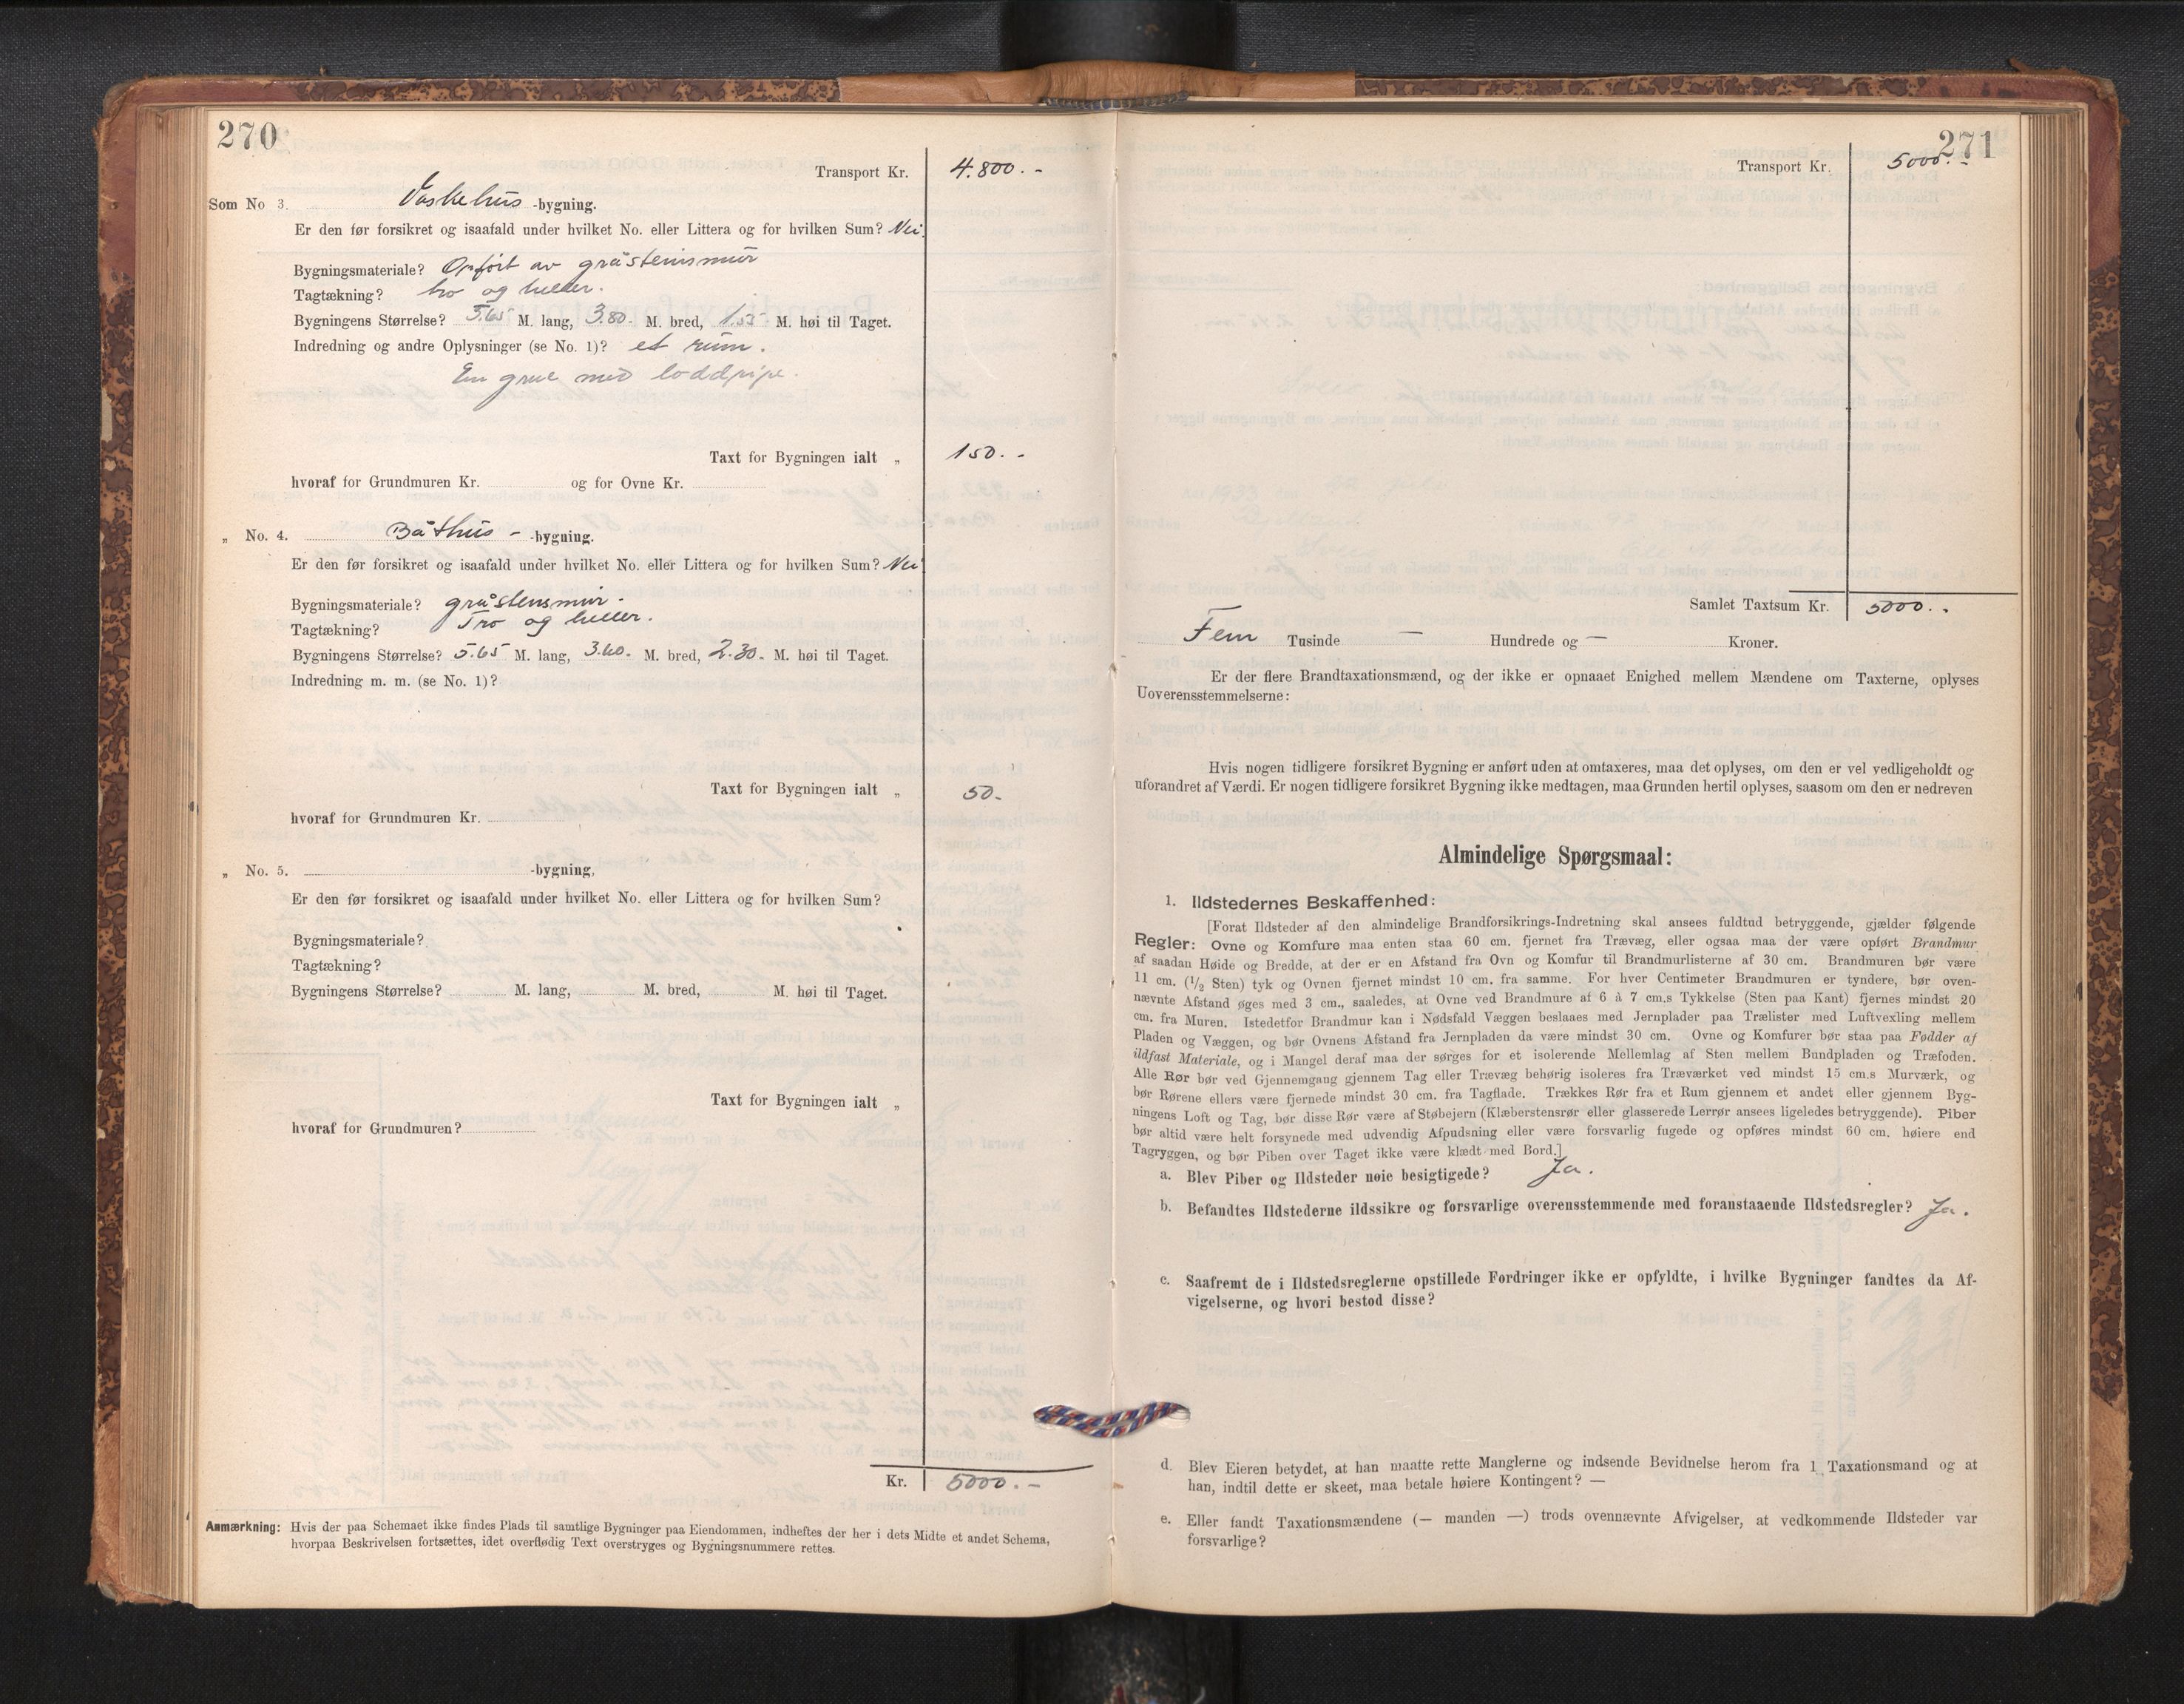 270
Transport Kr. 4.800.-
Som No 3. Vaskehus -bygning.
Er den før forsikret og isaafald under hvilket No. eller Littera og for hvilken Sum? Nei
Bygningsmateriale? Opført av gråstensmur
Tagtækning? tro og heller.
Bygningens Størrelse? 5.65 M. lang, 3.80- M. bred, 1.55- M. høi til Taget.
Indredning og andre Oplysninger (se No. 1)? et rum.
En grue med loddpipe.
Taxt for Bygningen ialt „ 150.-
hvoraf for Grundmuren Kr. og for Ovne Kr.
„ No. 4. Båthus - -bygning.
Er den før forsikret og isaafald under hvilket No. eller Littera og for hvilken Sum? Nei
Bygningsmateriale? gråstensmur.
Tagtækning? Tro og heller.
Bygningens Størrelse? 5.65 M. lang, 3.60- M. bred, 2.30- M. høi til Taget.
Indredning m. m. (se No. 1)?
Taxt for Bygningen ialt „ 50-
hvoraf for Grundmuren Kr.
„ No. 5. -bygning,
Er den før forsikret og isaafald under hvilket No. eller Littera og for hvilken Sum?
Bygningsmateriale?
Tagtækning?
Bygningens Størrelse? M. lang, M. bred, M. høi til Taget.
Taxt for Bygningen ialt „
hvoraf for Grundmuren?
Kr. 5000.-
Anmærkning: Hvis der paa Schemaet ikke findes Plads til samtlige Bygninger paa Eiendommen, indheftes der her i dets Midte et andet Schema,
hvorpaa Beskrivelsen fortsættes, idet overflødig Text overstryges og Bygningsnummere rettes.
271
Transport Kr. 5000.-
Samlet Taxtsum Kr. 5000.-
Fem Tusinde — Hundrede og — Kroner.
Er der flere Brandtaxationsmænd, og der ikke er opnaaet Enighed mellem Mændene om Taxterne, oplyses
Uoverensstemmelserne:
Hvis nogen tidligere forsikret Bygning er anført uden at omtaxeres, maa det oplyses, om den er vel vedligeholdt og
uforandret af Værdi. Er nogen tidligere forsikret Bygning ikke medtagen, maa Grunden hertil oplyses, saasom om den er nedreven
Almindelige Spørgsmaal:
1. Ildstedernes Beskaffenhed:
[Forat Ildsteder af den almindelige Brandforsikrings-Indretning skal ansees fuldtud betryggende, gjælder følgende
Regler: Ovne og Komfure maa enten staa 60 cm. fjernet fra Trævæg, eller ogsaa maa der være opført Brandmur
af saadan Høide og Bredde, at der er en Afstand fra Ovn og Komfur til Brandmurlisterne af 30 cm. Brandmuren bør være
11 cm. (1/2 Sten) tyk og Ovnen fjernet mindst 10 cm. fra samme. For hver Centimeter Brandmuren er tyndere, bør oven-
nævnte Afstand øges med 3 cm., saaledes, at Ovne ved Brandmure af 6 à 7 cm.s Tykkelse (Sten paa Kant) fjernes mindst 20
cm. fra Muren. Istedetfor Brandmur kan i Nødsfald Væggen beslaaes med Jernplader paa Trælister med Luftvexling mellem
Pladen og Væggen, og bør Ovnens Afstand fra Jernpladen da være mindst 30 cm. Ovne og Komfurer bør staa paa Fødder af
ildfast Materiale, og i Mangel deraf maa der sørges for et isolerende Mellemlag af Sten mellem Bundpladen og Træfoden.
Alle Rør bør ved Gjennemgang gjennem Tag eller Trævæg behørig isoleres fra Træværket ved mindst 15 cm.s Murværk, og
bør Rørene ellers være fjernede mindst 30 cm. fra Tagflade. Trækkes Rør fra et Rum gjennem et andet eller gjennem Byg-
ningens Loft og Tag, bør disse Rør være af Støbejern (Klæberstensrør eller glasserede Lerrør ansees ligeledes betryggende). Piber
bør altid være helt forsynede med udvendig Afpudsning eller være forsvarlig fugede og opføres mindst 60 cm. høiere end
Tagryggen, og bør Piben over Taget ikke være klædt med Bord.]
a. Blev Piber og Ildsteder nøie besigtigede? Ja.
b. Befandtes Ildstederne ildssikre og forsvarlige overensstemmende med foranstaaende Ildstedsregler? Ja.
c. Saafremt de i Ildstedsreglerne opstillede Fordringer ikke er opfyldte, i hvilke Bygninger fandtes da Af-
vigelserne, og hvori bestod disse?
d. Blev Eieren betydet, at han maatte rette Manglerne og indsende Bevidnelse herom fra 1 Taxationsmand og at
han, indtil dette er skeet, maa betale høiere Kontingent? —
e. Eller fandt Taxationsmændene (— manden —) trods ovennævnte Afvigelser, at vedkommende Ildsteder var
forsvarlige?